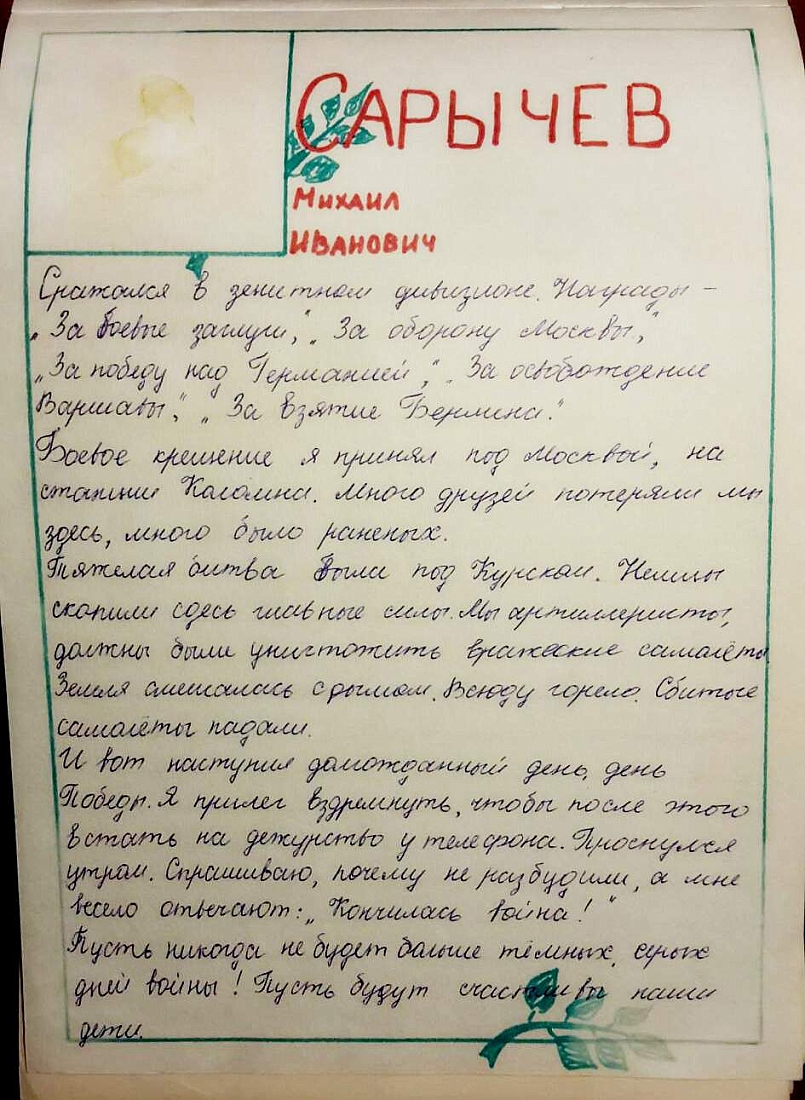 САРЫЧЕВ
МИХАИЛ
ИВАНОВИЧ
Сражался в зенитном дивизионе. Награды –
„За боевые заслуги", „За оборону Москвы",
„За победу над Германией", „За освобождение
Варшавы", „За взятие Берлина".
Боевое крещение я принял под Москвой, на
станции Коломна. Много друзей потеряли мы
здесь, много было раненых.
Тяжелая битва была под Курском. Немцы
скопили здесь главные силы. Мы артиллеристы,
должны были уничтожить вражеские самолёты.
Земля смешалась с дымом. Всюду горело. Сбитые
самолёты падали.
И вот наступил долгожданный день, день
Победы. Я прилег вздремнуть, чтобы после этого
встать на дежурство у телефона. Проснулся
утром. Спрашиваю, почему не разбудили, а мне
весело отвечают: „Кончилась война!"
Пусть никогда не будет больше тёмных, серых
дней войны! Пусть будут счастливы наши
дети.